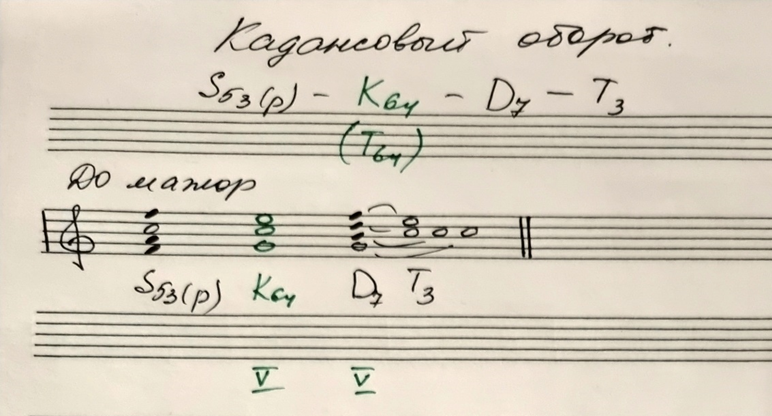 Кадансовый оборот.
S53(p) - K64 - D7 - T3
(T64)
До мажор
S53(p) K64 D7 T3
V V